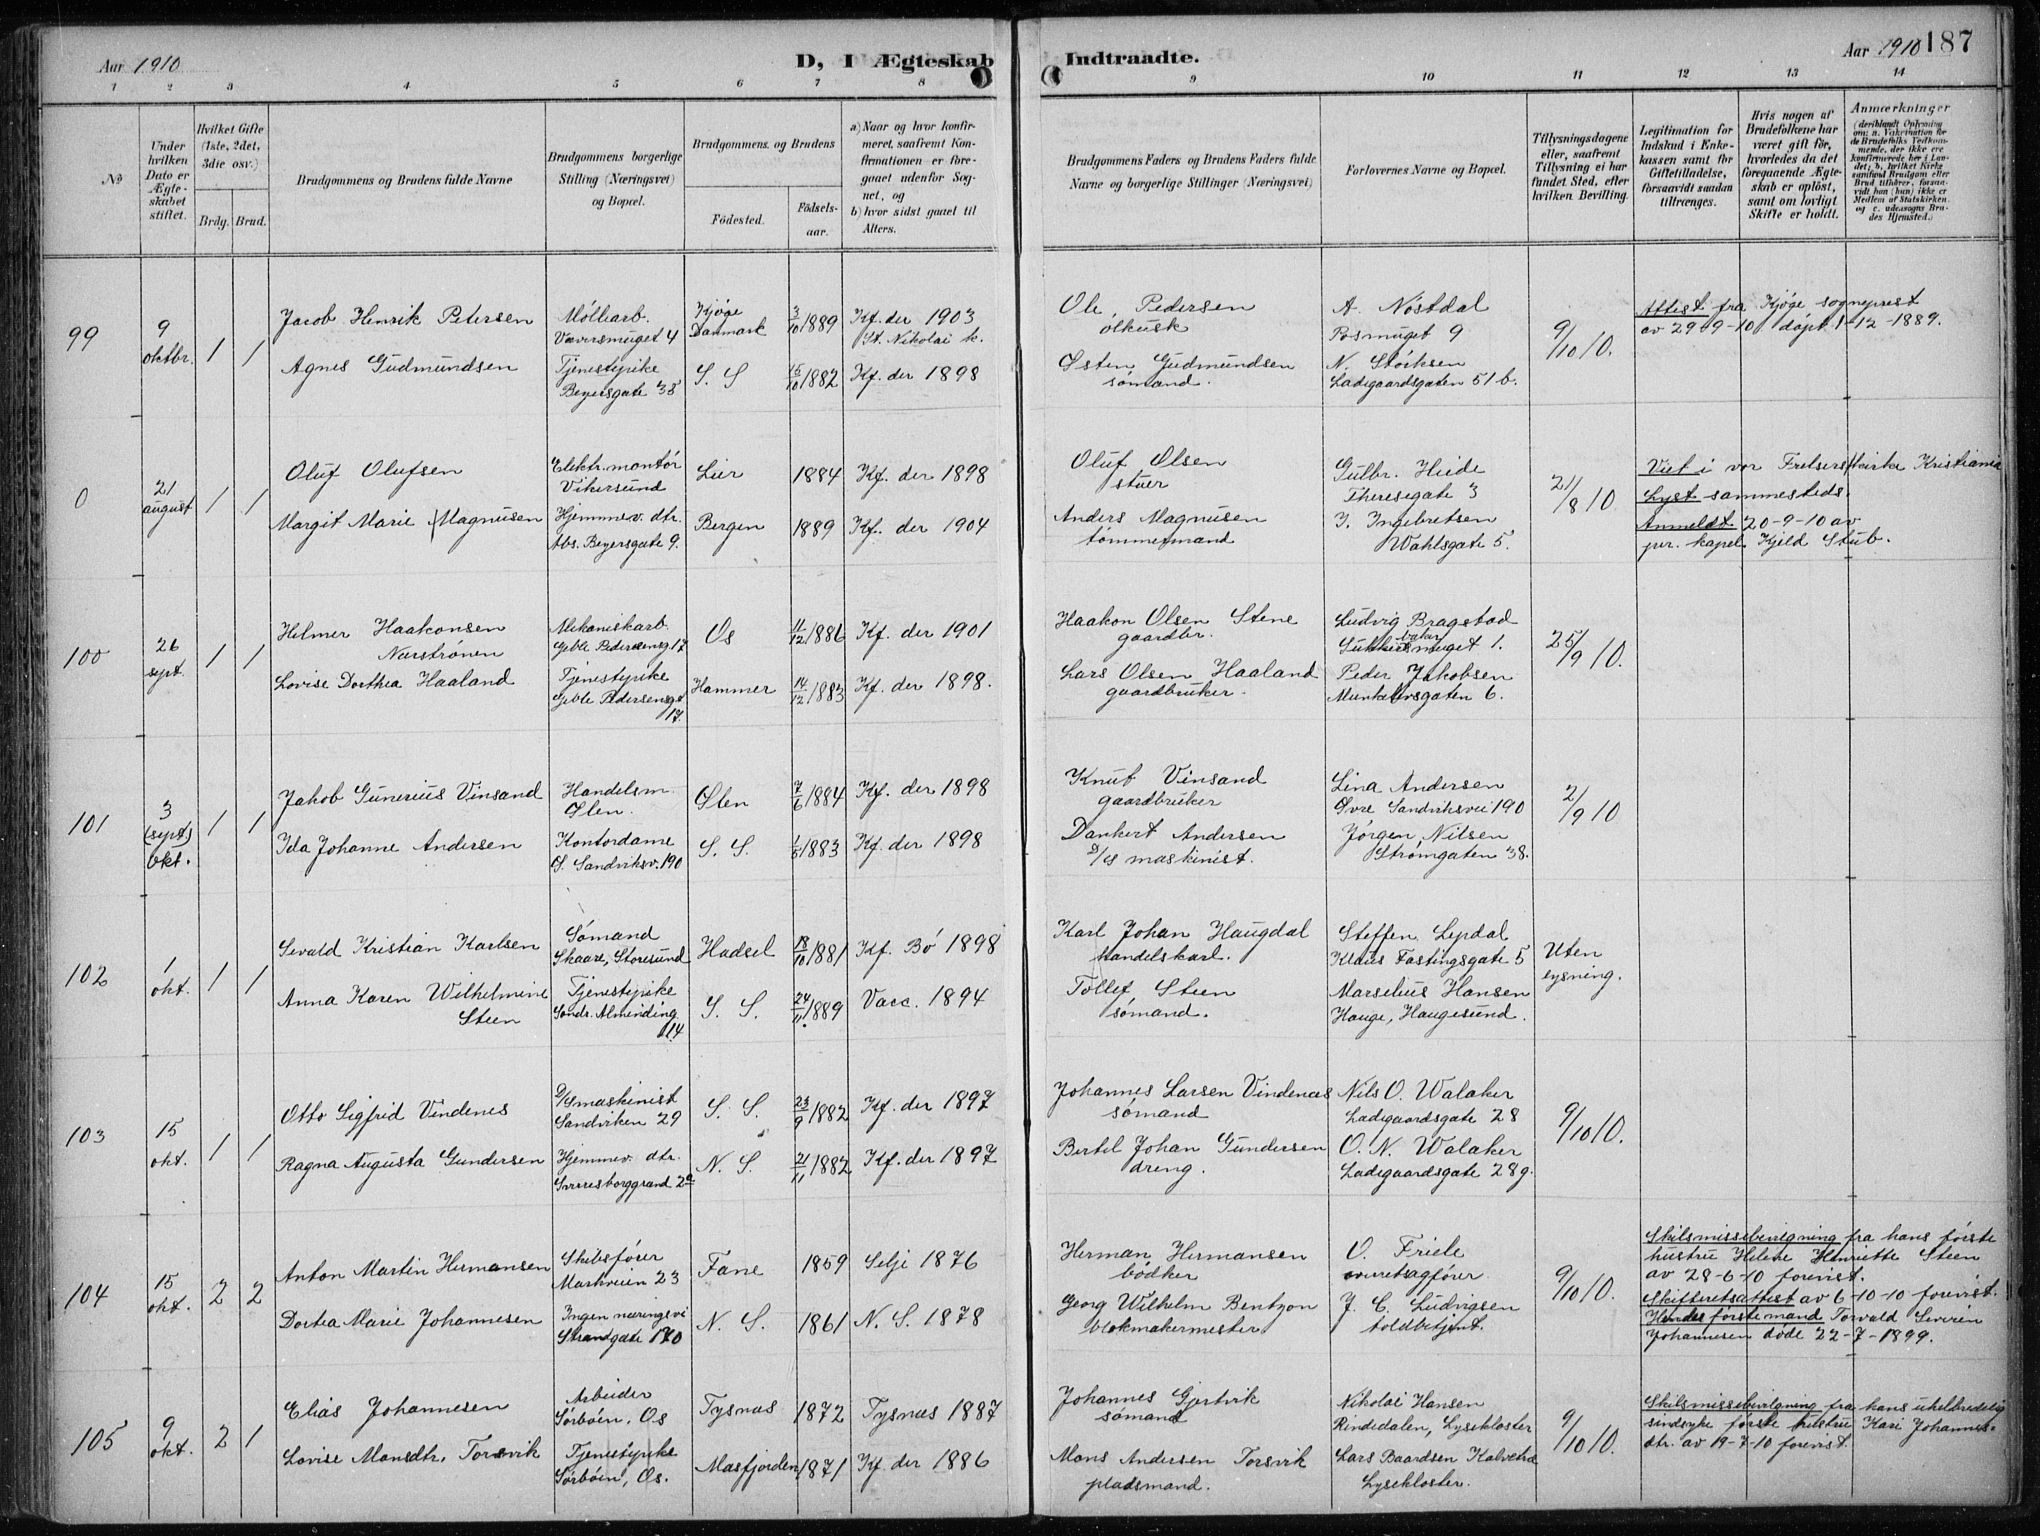 Aar 1910
D, I Ægteskab Indtraadte.
Aar 1910
187
1 2 3 4 5 6 7 8 9 10 11 12 13 14
No
Under
hvilken
Dato er
Ægte-
skabet
stiftet.
Hvilket Gifte
(1ste, 2det,
3die osv.)
Brdg. Brud.
Brudgommens og Brudens fulde Navne
Brudgommens borgerlige
Stilling (Næringsvei)
og Bopæl.
Brudgommens og Brudens
Födested.
Födsels-
aar.
a) Naar og hvor konfir-
meret, saafremt Kon-
firmationen er fore-
gaaet udenfor Sog-
net, og
b) hvor sidst gaaet til
Alters.
Brudgommens Faders og Brudens Faders fulde
Navne og borgerlige Stillinger (Næringsvei)
Forlovernes Navne og Bopæl.
Tillysningsdagene
eller, saafremt
Tillysning ei har
fundet Sted, efter
hvilken Bevilling.
Legitimation for
Indskud i Enke-
kassen samt for
Giftetilladelse,
forsaavidt saadan
tiltrænges.
Hvis nogen af
Brudefolkene har
været gift för,
hvorledes da det
foregaaende Ægte-
skab er oplöst,
samt om lovligt
Skifte er holdt.
Anmærkninger
(deriblandt Oplysning
om: a. Vakcination for
de Brudefolks Vedkom-
mende, der ikke ere
konfirmerede her i Lan-
det; b. hvilket Kirke-
samfund Brudgom eller
Brud tilhörer, forsaa-
vidt han (hun) ikke er
Medlem af Statskirken,
og c. udensogns Bru-
des Hjemsted.)
99
9
oktbr.
1 1
Jacob Henrik Petersen
Møllearb.
Væversmuget 4
Kjöge
Danmark
3/10 1889
Kf. der 1903
St. Nikolai k.
Ole Pedersen
ölkusk
A. Nöstdal
Posmuget 9
9/10 10.
Attest fra Kjöge sogneprest
av 29-9-10, döpt 1-12-1889.
Agnes Gudmundsen
Tjenestepike
Beyersgate 33
S. S
15/10 1882
Kf. der 1898
Østen Gudmundsen
sömand.
N. Störksen
Ladegaardsgaten 51 b.
0
21
august
1 1
Oluf Olufsen
Elektr. montör
Vikersund
Lier
1884
Kf. der 1898
Oluf Olsen
stuer
Gulbr. Heide
Theresegate 3
21/8 10
Viet i vor Frelsers kirke Kristiania
Lyst sammesteds.
Margit Marie Magnusen
Hjemmev. dtr.
Abs. Beyersgate 9.
Bergen
1889
Kf. der 1904
Anders Magnusen
tömmermand
J. Ingebretsen
Wahlsgate 5.
Anmeldt 20-9-10 av
per. kapel. Kjeld Stub.
100
26
sept.
1 1
Helmer Haakonsen
Nærströnen
Mekaniskarb.
Geble Pedersensg. 17
Os
11/12 1886
Kf. der 1901
Haakon Olsen Stene
gaardbr.
Ludvig Bragstad
muget 1.
25/9 10.
Lovise Dorthea Haaland
Tjenestepike
Geble Pedersensgt
17.
Hammer
14/12 1883
Kf. der 1898.
Lars Olsen Haaland
gaardbruker.
Peder Jakobsen
Munkelivsgaten 6.
101
3
(sept)
okt.
1 1
Jakob Gunerius Vinsand
Handelsm.
Ølen.
Ølen
7/6 1884
Kf. der 1898
Knut Vinsand
gaardbruker
Lina Andersen
Øvre Sandviksvei 190
2/9 10
Ida Johanne Andersen
Kontordame
Ø. Sandviksv. 190
S. S.
1/5 1883
Kf. der 1898
Dankert Andersen
D/S maskinist.
Jörgen Nilsen
Strömgaten 38.
102
1
okt.
1 1
Sevald Kristian Karlsen
Sömand
Skaare, Storesund
Hadsel
18/10 1881
Kf. Bö 1898
Karl Johan Haugdal
handelskarl.
Steffen Lepdal
Klaus Fastingsgate 5
Uten
lysning.
Anna Karen Wilhelmine
Steen
Tjenestepike
Söndr. Almending
14
S. S.
24/11 1889
Vacc. 1894
Tollef Steen
sömand.
Marselius Hansen
Hauge, Haugesund.
103
15
okt.
1 1
Otto Sigfrid Vindenes
D/Smaskinist
Sandviken 29
S. S.
23/9 1882
Kf. der 1897
Johannes Larsen Vindenæs
sömand
Nils O. Walaker
Ladegaardsgate 28
9/10 10.
Ragna Augusta Gundersen
Hjemmev. dtr.
Sverresborggrand 2a
N. S.
21/11 1882
Kf. der 1897
Bertel Johan Gundersen
dreng.
O. N. Walaker
Ladegaardsgate 28 g.
104
15
okt.
2 2
Anton Martin Hermansen
Skibsförer
Markveien 23
Fane
1859
Selje 1876
Herman Hermansen
bödker
O. Friele
overretsagförer
9/10 10.
Skilsmissebevilgning fra hans förste
hustru Helene Henriette Steen
av 28-6-10 forevist.
Skifteretsattest av 6-10-10 forevist.
Dortea Marie Johannesen
Ingen næringsvei
Strandgate 170
N. S.
1861
N. S. 1878
Georg Wilhelm Bentzon
blokmakermester
J. C. Ludvigsen
toldbetjent.
Hendes förste mand Torvald Severin
Johannesen döde 22-7-1899.
105
9
okt.
2 1
Elias Johannesen
Arbeider
Sörböen, Os
Tysnæs
1872
Tysnæs 1887
Johannes Gjertvik
sömand
Nikolai Hansen
Rindedalen, Lysekloster
9/10 10.
Skilsmissebevilgning fra hans uhelbredelig
sindsyke förste hustru Kari Johannes-
dtr. av 19-7-10 forevist.
Lovise Monsdtr. Torsvik
Tjenestepike
Sörböen, Os.
Masfjorden
1871
Kf. der 1886
Mons Andersen Torsvik
pladsmand.
Lars Baardsen Kalvetræ
Lysekloster.